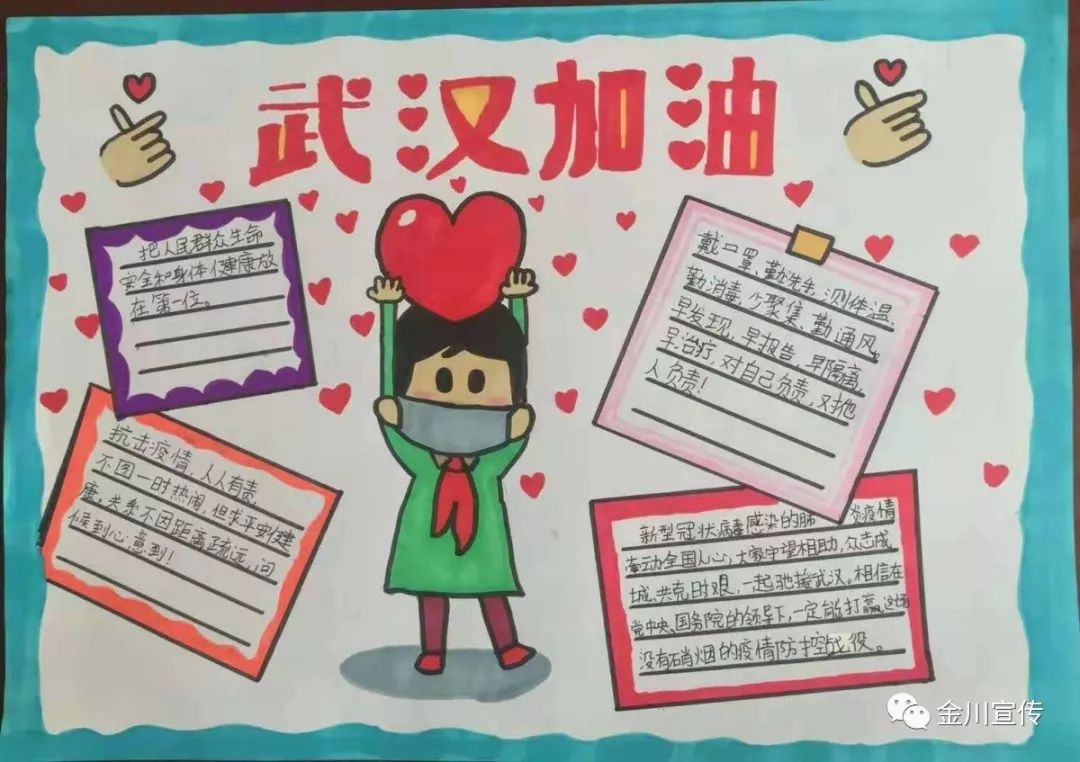 武汉加油
把人民群众生命
安全和身体健康放
在第一位。
戴口罩、勤洗手、测体温、
勤消毒、少聚集、勤通风。
早发现,早报告,早隔离,
早治疗,对自己负责,对他
人负责!
抗击疫情,人人有责
不图一时热闹,但求平安健
康,关系不因距离疏远,问
候到心意到!
新型冠状病毒感染的肺炎疫情
牵动全国人心,大家守望相助,众志成
城、共克时艰,一起驰援武汉。相信在
党中央、国务院的领导下,一定能打赢这场
没有硝烟的疫情防控战役。
金川宣传